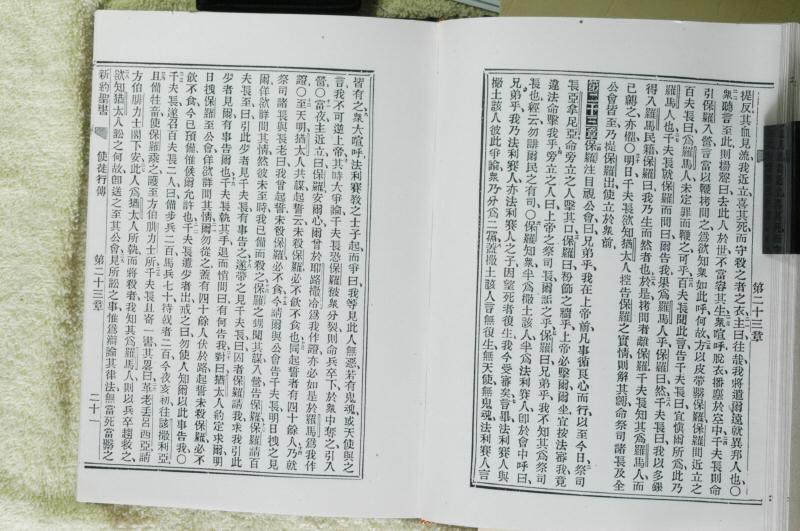 第二十三章
提反其血見流我近立喜其死而守殺之者之衣主曰往哉我將遣爾遠就異邦人也〇
衆聽言至此則揚聲曰去此人於世不當容其生衆喧呼脫衣播塵於空中千夫長則命
引保羅入營言當以鞭拷問之爲欲知衆如此呼何故方以皮帶
百夫長曰爲羅馬人未定罪而鞭之可乎百夫長聞此言告千夫長曰宜愼爾所爲此乃
羅馬人也千夫長就保羅而問曰爾告我果爲羅馬人乎保羅曰然千夫長曰我以多銀
得入羅馬民籍保羅曰我乃生而然者也於是拷問者離保羅千夫長知其爲羅馬人而
已縛之亦懼〇明日千夫長欲知猶太人控告保羅之實情則解其縛命祭司諸長及全
公會皆至乃提保羅出使立於衆前
第二十三章保羅注目視公會曰兄弟乎我在上帝前凡事循良心而行以至今日祭司
長亞拿尼亞命旁立之人擊其口保羅曰粉飾之牆乎上帝必擊爾爾坐宜按法審我竟
違法命擊我乎旁立之人曰上帝之祭司長爾詬之乎保羅曰兄弟乎我不知其爲祭司
長也經云勿誹爾民之有司〇保羅知衆半爲撒土該人半爲法利賽人卽於會中呼曰
兄弟乎我乃法利賽人亦法利賽人之子因望死者復生我今受審矣言畢法利賽人與
撒土該人彼此爭論衆乃分爲二蓋撒土該人言無復生無天使無鬼魂法利賽人言
皆有之衆大喧呼法利賽敎之士子起而爭曰我等見此人無惡若有鬼魂或天使與之
言我不可逆上帝其時大爭論千夫長恐保羅被衆分裂則命兵卒下於衆中奪之引入
營〇當夜主近立曰保羅安爾心爾曾於耶路撒冷爲我作證亦必如是於羅馬爲我作
證〇至天明猶太人共謀起誓云未殺保羅必不飮不食也同起誓者有四十餘人乃就
祭司諸長與長老曰我曾起誓未殺保羅必不飮不食今請爾與公會告千夫長明日拽之見
爾佯欲詳問其情然彼未至時我已備而殺之保羅之甥聞其謀入營告保羅保羅請百
夫長至曰引此少者見千夫長有事告之遂帶之見千夫長曰囚者保羅請我求我引此
少者見爾有事告爾也千夫長執其手退而情問曰有何告我對曰猶太人約定求爾明
日拽保羅至公會佯欲詳問其情爾勿從之蓋有四十餘人伏於路起誓未殺保羅必不
飮不食今已預備惟候爾允許也千夫長遣少者出戒之曰勿使人知爾以此事告我〇
千夫長遂召百夫長二人曰備步兵二百馬兵七十持鎗者二百今夜亥初往該撒利亞
且備牲畜使保羅乘之護至方伯腓力士所千夫長且寄一書其畧曰革老丟呂西亞請
方伯腓力士閣下安此人爲猶太人所執而將殺者我知其爲羅馬人則以兵卒趨救之
欲知猶太人訟之何故卽送之至其公會見所訟之事惟爲辯論其律法無當死當縛之
新約聖書
使徒行傳
第二十三章
二十一